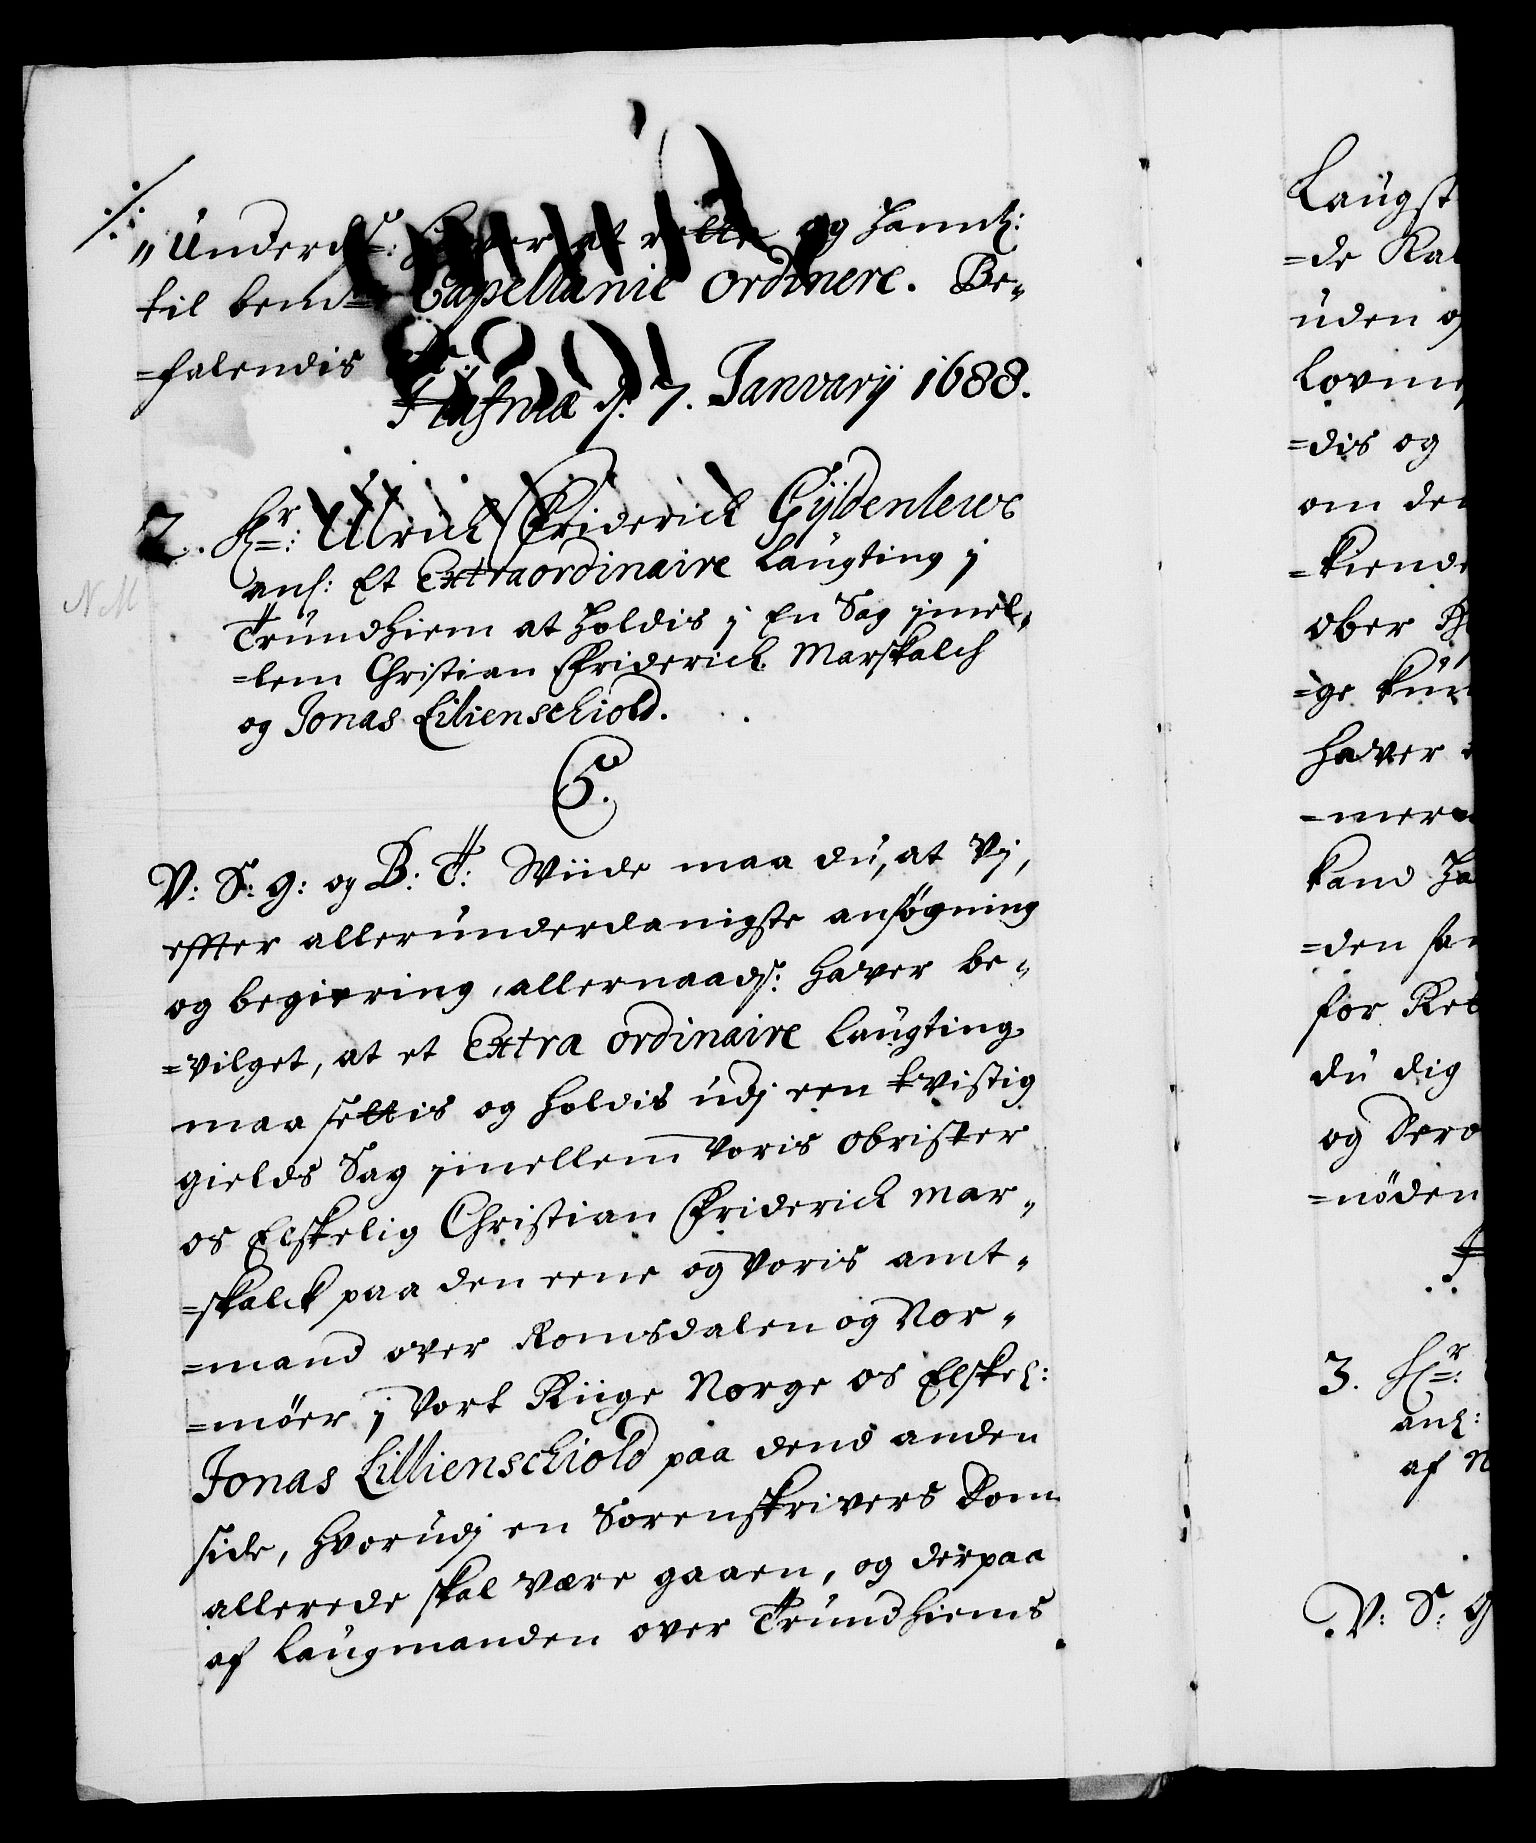 "Underds: haver at rette og hannl:
til bemte Capellanie ordinere. Be-
=falendis
Hafniæ d. 7. Janvarij 1688.
2. Hr: Ulrich Friderich Gyldenlewe
anl: Et Extraordinaire Laugting j
Trundhiem at holdis j En Sag jmel-
=lem Christian Friderich Marskalch
og Jonas Lilienschiold.
C5.
V: S: G: og B: T: Wiide maa du, at Vj,
effter allerunderdanigste ansøgning
og begiering, allernaadst: haver be-
=vilget, at et Extra ordinaire Laugting
maa settis og holdis udj een tvistig
gields Sag jmellem Voris Obrister
os Elskelig Christian Friderich Mar-
=skalck paa den eene og Voris amt-
=mand over Romsdalen og Nor-
=möer j Vort Riige Norge os Elskel:
Jonas Lillienschiold paa dend anden
side, hvorudj en Sorenskrivers Dom
allerede skal være gaaen, og derpaa
af Laugmanden over Trundhiems
Laugst
=de
uden
Lovm
=dis og
om de
=kiende
ober
=ge
haver
=mer
kand
=den
for
du dig
og Dero
=nöden
3. Hr:
anl:
af
V: S: G